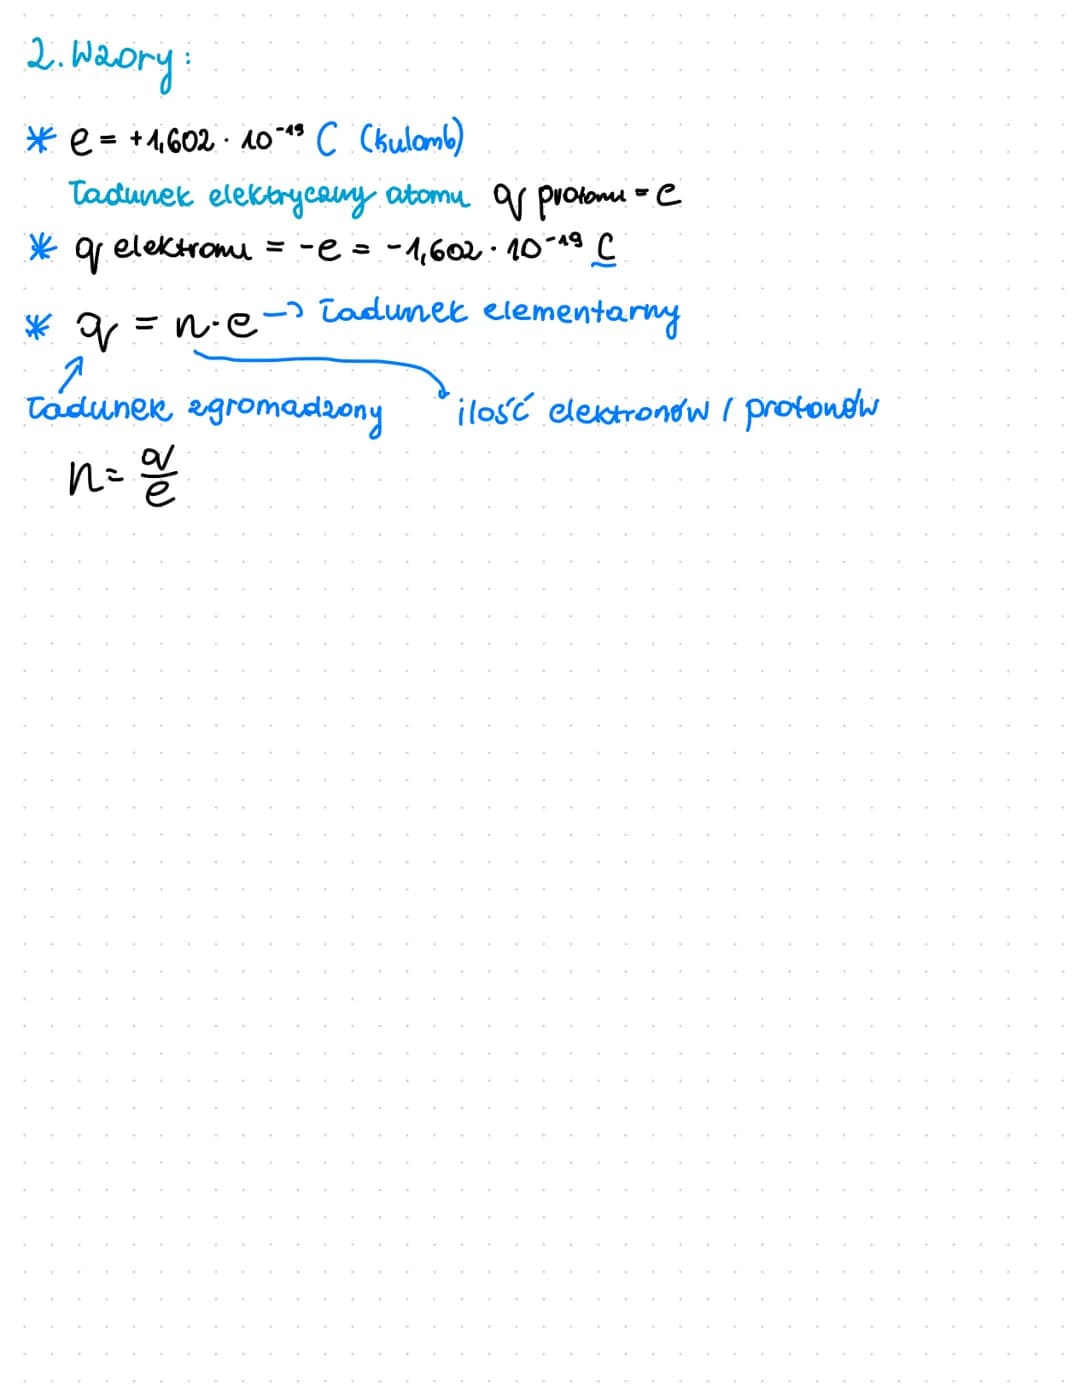 2. Wzory:
* e = +1,602 · 10⁻¹⁹ C (kulomb)
Ładunek elektryczny atomu q protonu = e
* q elektronu = -e = -1,602 · 10⁻¹⁹ C
* q = n · e → Ładunek elementarny
Ładunek zgromadzony ilość elektronów / protonów
n = q/e